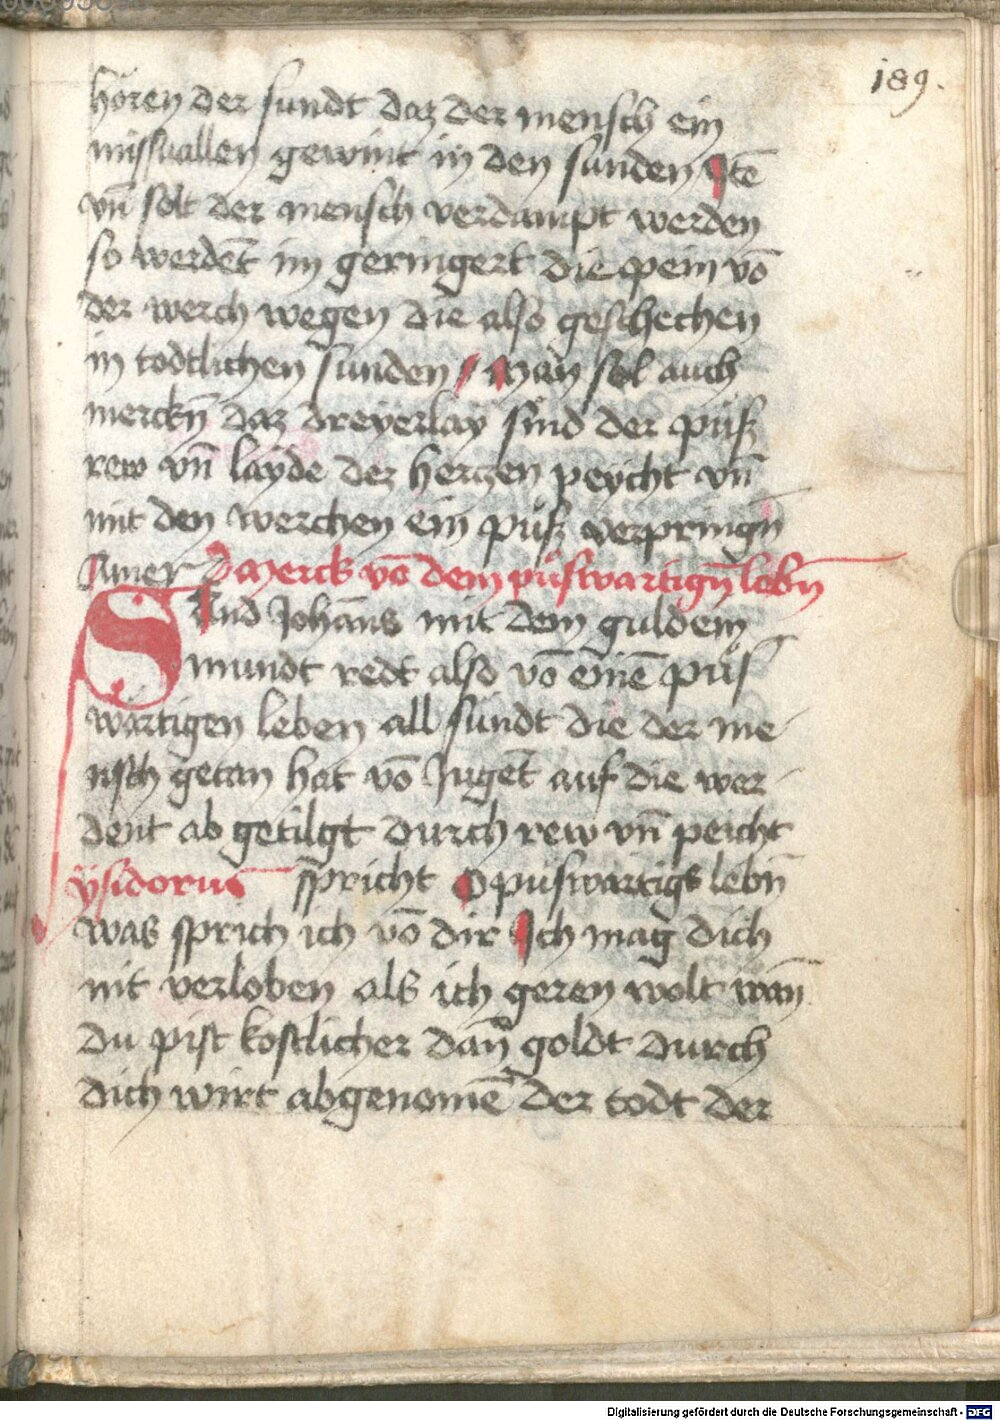 189.
hören der sundt daz der mensch ein
missuallen gewint in den sunden Itē
vn̄ solt der mensch verdampt werden
so werdēt im geringert die pein vō
der werch wegen die also geschechen
in todtlichen sunden / Man sol auch
merckn̄ daz dreyerlay sind der püß
rew vn̄ layde dez herczen peycht vn̄
mit den werchen ein püß verpringn̄
Amer Merck vō dem püswartign̄ lebn̄
Sand Johan̄s mit dem guldem
mundt redt also vō einē püs
wartigen leben all sundt die der me
nsch getan hat vō Jugēt auf die wer
dent ab getilgt durch rew vn̄ peicht
ysidorus spricht O püswartigs lebn̄
was sprich ich vō dir Ich mag dich
nit verloben als ich geren wolt wan̄
du pist kostlicher dan̄ goldt durch
dich wirt abgenomē der todt der
Digitalisierung gefördert durch die Deutsche Forschungsgemeinschaft - DFG